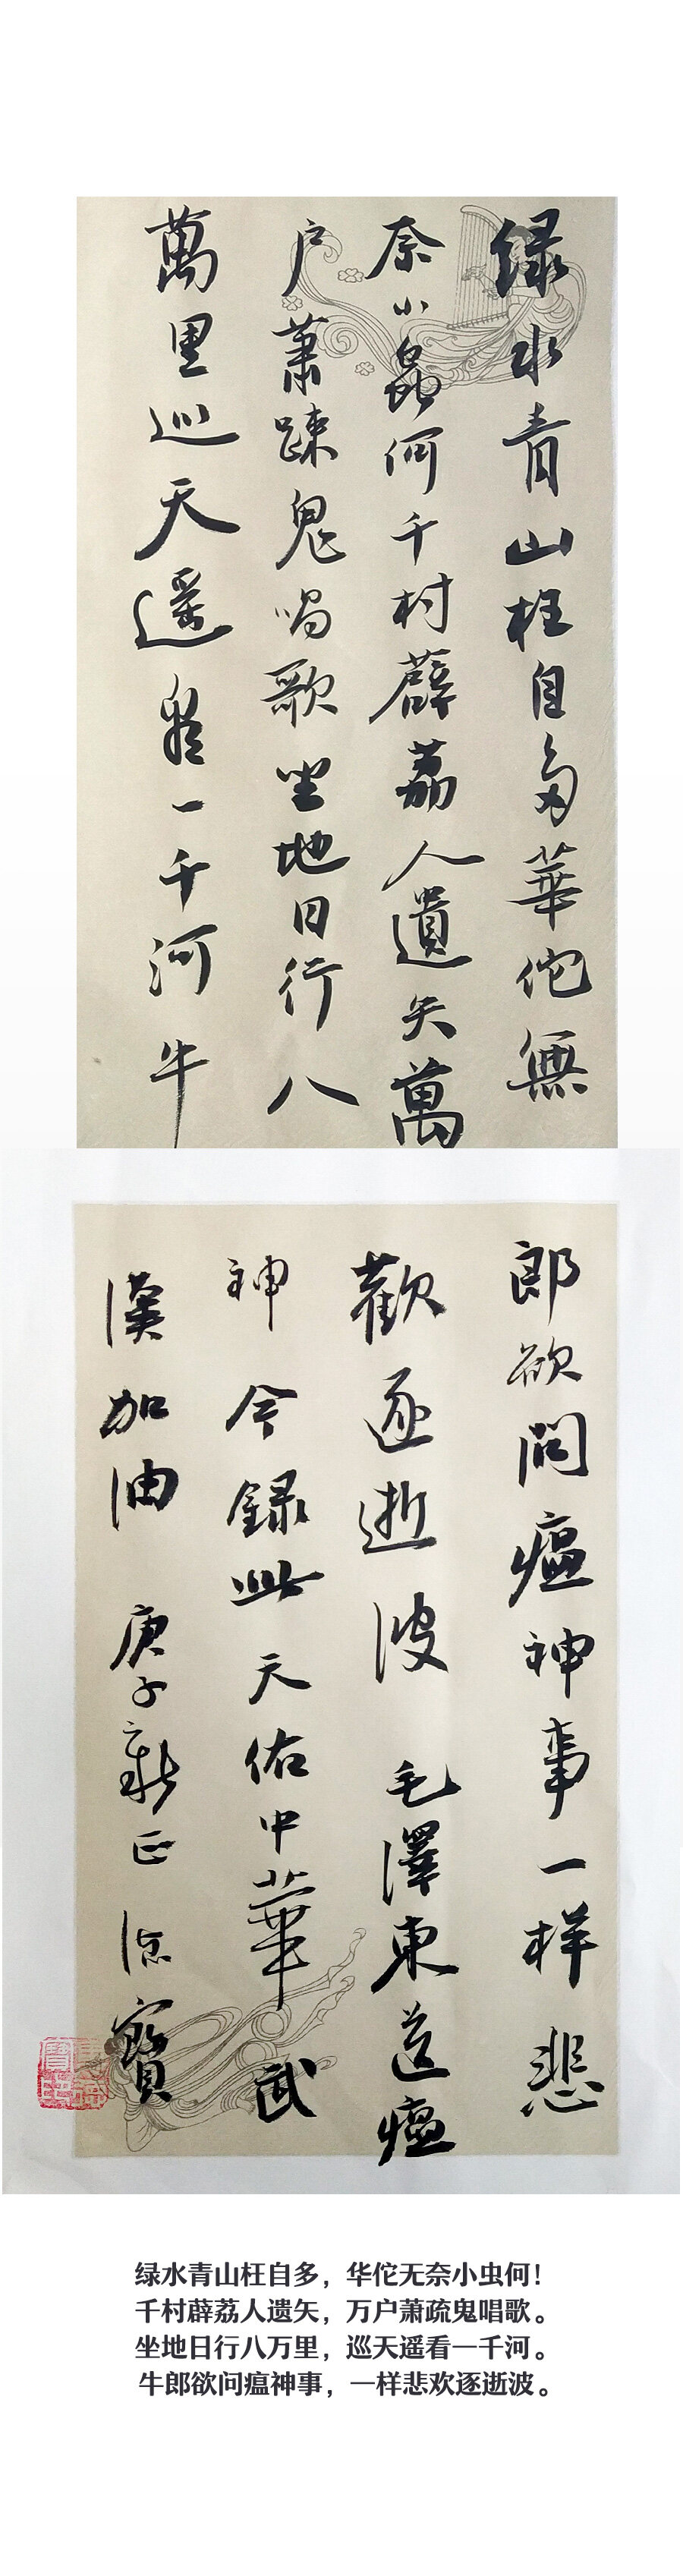 绿水青山枉自多華佗無
奈小蟲何千村薜荔人遺矢萬
户蕭踈鬼唱歌坐地日行八
萬里巡天遥看一千河牛
郎欲問瘟神事一样悲
歡逐逝波 毛澤東送瘟
神 今録此 天佑中華 武
漢加油 庚子新正 德寶
绿水青山枉自多，华佗无奈小虫何！
千村薜荔人遗矢，万户萧疏鬼唱歌。
坐地日行八万里，巡天遥看一千河。
牛郎欲问瘟神事，一样悲欢逐逝波。